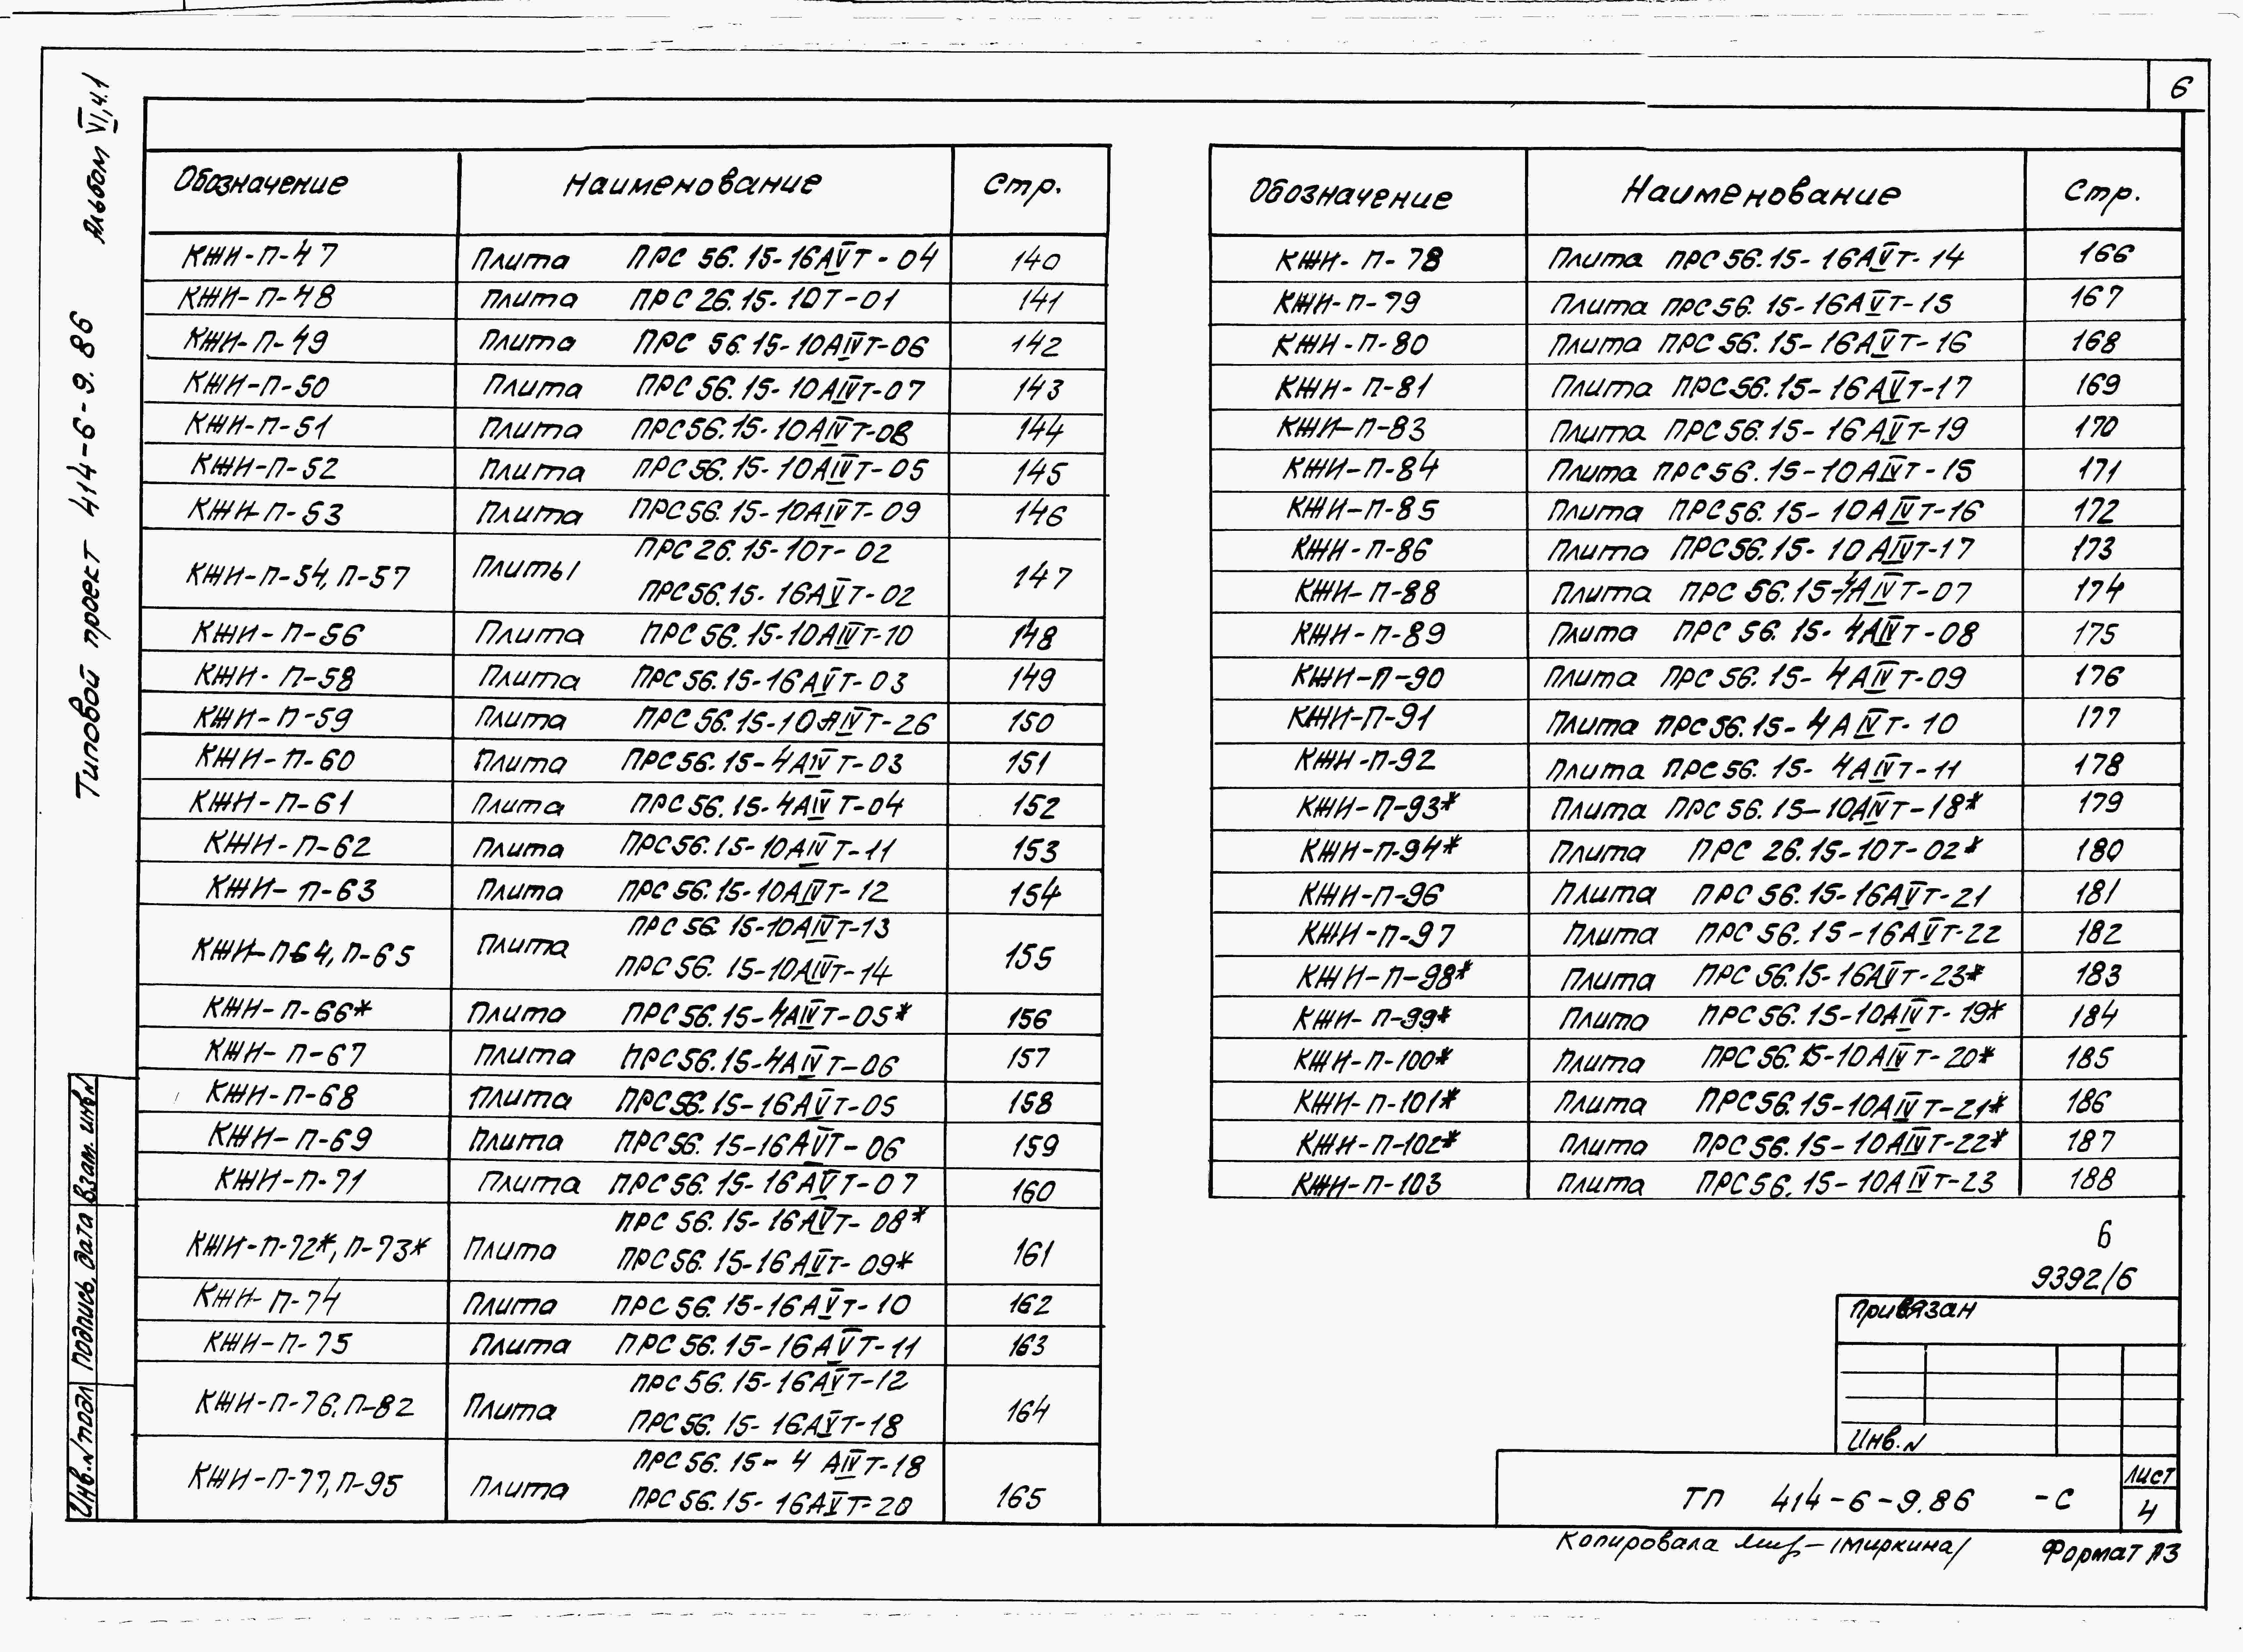 6
Типовой проект 414-6-9.86 Альбом VI, ч.1
Обозначение Наименование Стр.
КЖИ-П-47 Плита ПРС 56.15-16АVТ-04 140
КЖИ-П-48 Плита ПРС 26.15-10Т-01 141
КЖИ-П-49 Плита ПРС 56.15-10АIVТ-06 142
КЖИ-П-50 Плита ПРС 56.15-10АIVТ-07 143
КЖИ-П-51 Плита ПРС 56.15-10АIVТ-08 144
КЖИ-П-52 Плита ПРС 56.15-10АIVТ-05 145
КЖИ-П-53 Плита ПРС 56.15-10АIVТ-09 146
КЖИ-П-54, П-57 Плиты ПРС 26.15-10Т-02 147
ПРС 56.15-16АVТ-02
КЖИ-П-56 Плита ПРС 56.15-10АIVТ-10 148
КЖИ-П-58 Плита ПРС 56.15-16АVТ-03 149
КЖИ-П-59 Плита ПРС 56.15-10АIVТ-26 150
КЖИ-П-60 Плита ПРС 56.15-4АIVТ-03 151
КЖИ-П-61 Плита ПРС 56.15-4АIVТ-04 152
КЖИ-П-62 Плита ПРС 56.15-10АIVТ-11 153
КЖИ-П-63 Плита ПРС 56.15-10АIVТ-12 154
КЖИ-П-64, П-65 Плита ПРС 56.15-10АIVТ-13 155
ПРС 56.15-10АIVТ-14
КЖИ-П-66* Плита ПРС 56.15-4АIVТ-05* 156
КЖИ-П-67 Плита ПРС 56.15-4АIVТ-06 157
КЖИ-П-68 Плита ПРС 56.15-16АVТ-05 158
КЖИ-П-69 Плита ПРС 56.15-16АVТ-06 159
КЖИ-П-71 Плита ПРС 56.15-16АVТ-07 160
КЖИ-П-72*, П-73* Плита ПРС 56.15-16АVТ-08* 161
ПРС 56.15-16АVТ-09*
КЖИ-П-74 Плита ПРС 56.15-16АVТ-10 162
КЖИ-П-75 Плита ПРС 56.15-16АVТ-11 163
КЖИ-П-76, П-82 Плита ПРС 56.15-16АVТ-12 164
ПРС 56.15-16АVТ-18
КЖИ-П-77, П-95 Плита ПРС 56.15-4 АIVТ-18 165
ПРС 56.15-16АVТ-20
Обозначение Наименование Стр.
КЖИ-П-78 Плита ПРС 56.15-16АVТ-14 166
КЖИ-П-79 Плита ПРС 56.15-16АVТ-15 167
КЖИ-П-80 Плита ПРС 56.15-16АVТ-16 168
КЖИ-П-81 Плита ПРС 56.15-16АVТ-17 169
КЖИ-П-83 Плита ПРС 56.15-16АVТ-19 170
КЖИ-П-84 Плита ПРС 56.15-10АIVТ-15 171
КЖИ-П-85 Плита ПРС 56.15-10АIVТ-16 172
КЖИ-П-86 Плита ПРС 56.15-10АIVТ-17 173
КЖИ-П-88 Плита ПРС 56.15-4АIVТ-07 174
КЖИ-П-89 Плита ПРС 56.15-4АIVТ-08 175
КЖИ-П-90 Плита ПРС 56.15-4АIVТ-09 176
КЖИ-П-91 Плита ПРС 56.15-4АIVТ-10 177
КЖИ-П-92 Плита ПРС 56.15-4АIVТ-11 178
КЖИ-П-93* Плита ПРС 56.15-10АIVТ-18* 179
КЖИ-П-94* Плита ПРС 26.15-10Т-02* 180
КЖИ-П-96 Плита ПРС 56.15-16АVТ-21 181
КЖИ-П-97 Плита ПРС 56.15-16АVТ-22 182
КЖИ-П-98* Плита ПРС 56.15-16АVТ-23* 183
КЖИ-П-99* Плита ПРС 56.15-10АIVТ-19* 184
КЖИ-П-100* Плита ПРС 56.15-10АIVТ-20* 185
КЖИ-П-101* Плита ПРС 56.15-10АIVТ-21* 186
КЖИ-П-102* Плита ПРС 56.15-10АIVТ-22* 187
КЖИ-П-103 Плита ПРС 56.15-10АIVТ-23 188
6
9392/6
Привязан
Инв.N
ТП 414-6-9.86 -С
Лист
4
Копировала /Миркина/ Формат А3
Инв.N подл Подпись, дата Взам. инв.N